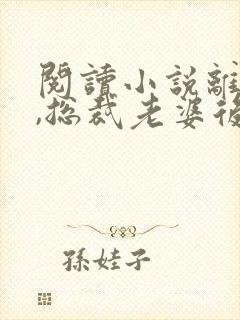 閱讀小說離
,總裁老婆後
孫娃子